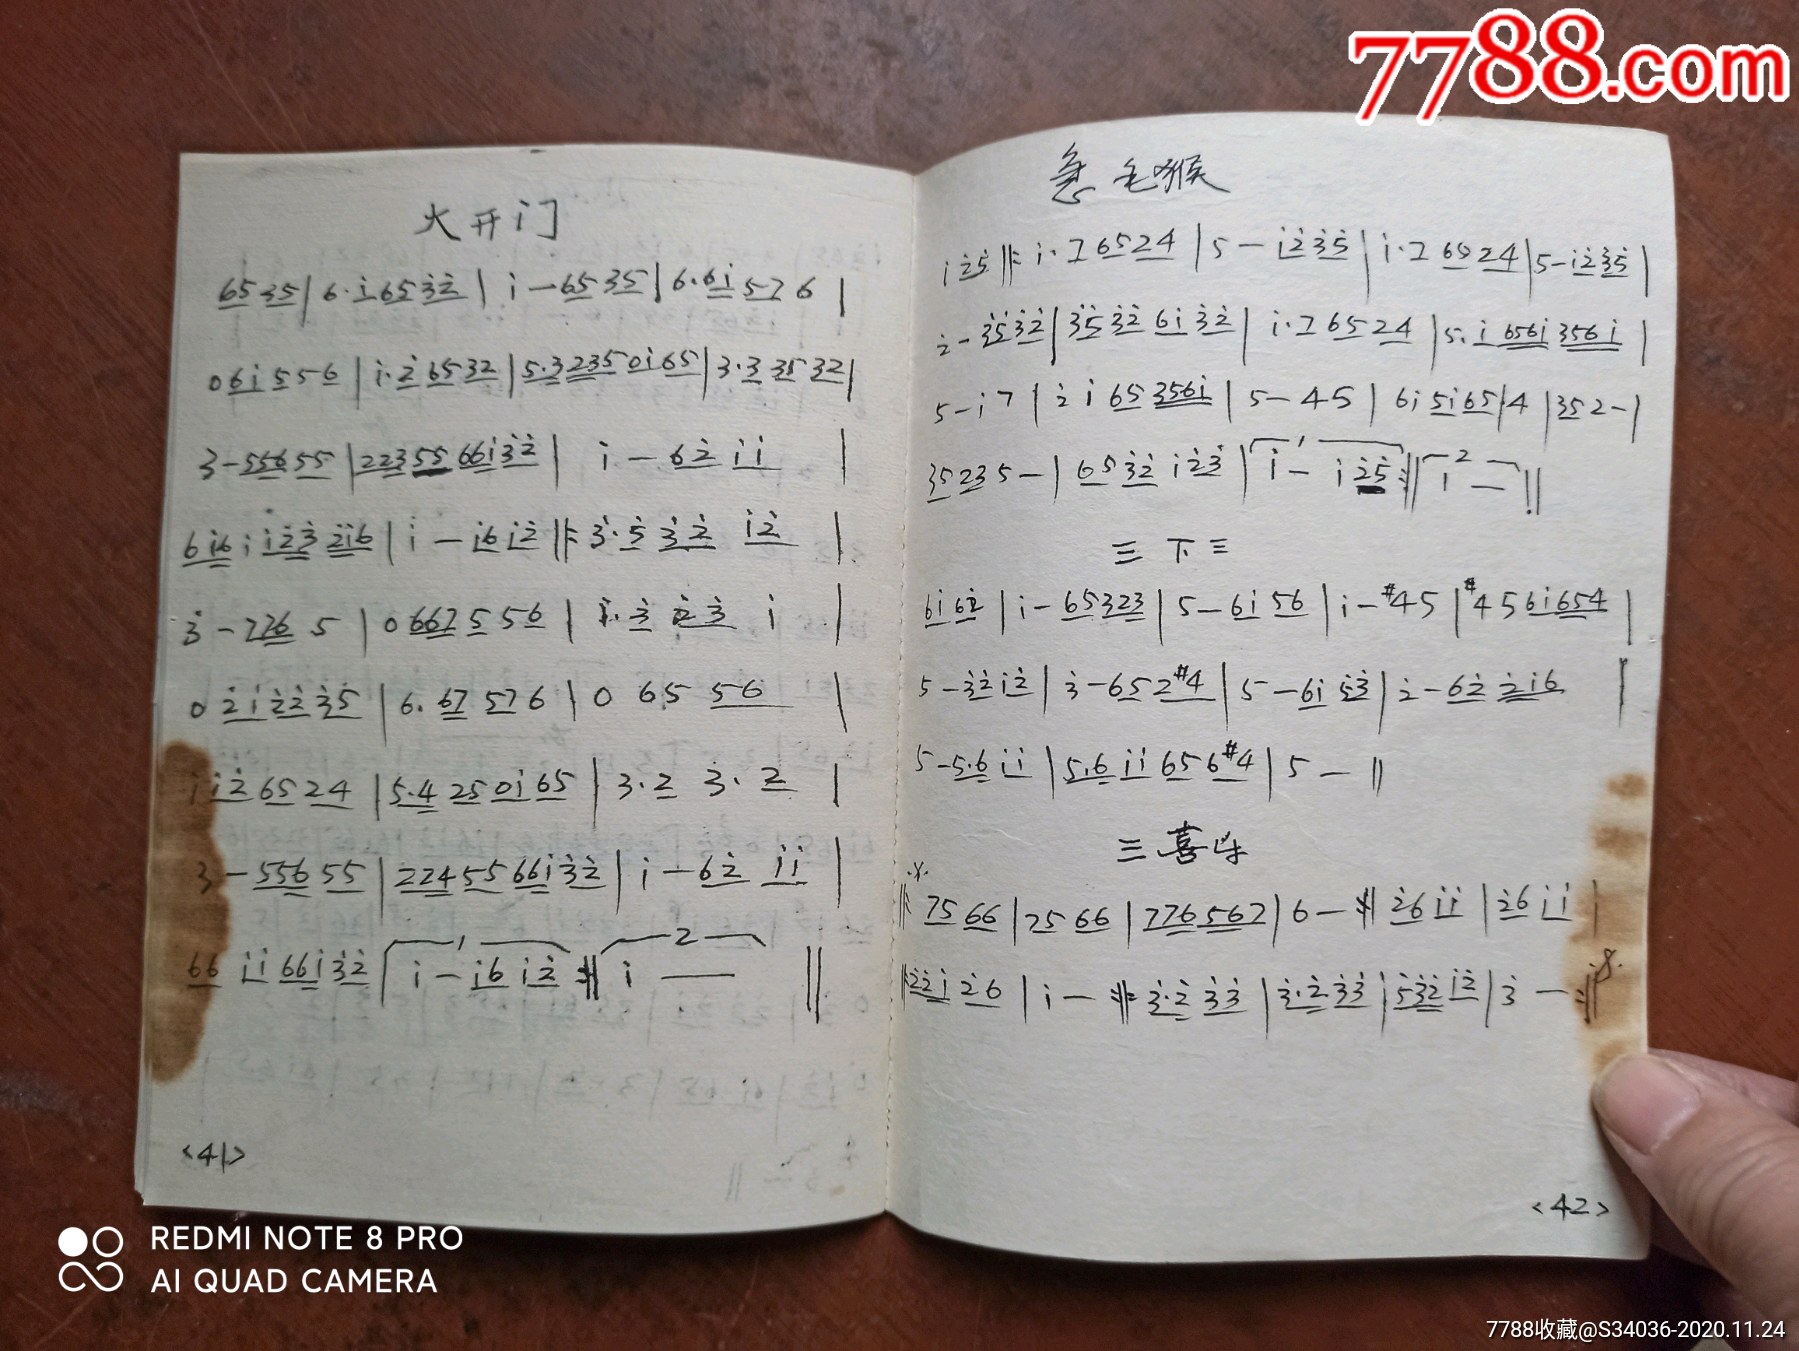 7788.com
大开门
6535|6·i6532̇|i-6535|6·6i576|
06i556|i·26532|5·32350i65|3·33532|
3-55655|2235566i32|i-62ii|
6i6ii232i6|i-i6i2‖:3·532i2|
3-7765|0667556|i·323i|
02i2235|6·67576|06556|
ii26524|5·4250i65|3·23·2|
3-55655|2245566i32|i-62ii|
66ii66i32|1 i-i6i2:‖2 i—‖
<41>
急毛猴
i25‖:i·76524|5-i235|i·76524|5-i235|
2-3532|35326i32|i·76524|5·i656i356i|
5-i7|2i65356i|5-45|6i5i654|352-|
35235-|6532i23|1 i-i25:‖2 i-‖
三下三
6i62|i-65323|5-6i56|i-#45|#456i654|
5-32i2|3-652#4|5-6i53|2-622i6|
5-5·6ii|5·6ii656#4|5-‖
三喜
‖:7566|7566|776567|6-:‖26ii|26ii|
22i26|i-:‖:3·233|3·233|532i2|3-:‖
<42>
REDMI NOTE 8 PRO
AI QUAD CAMERA
7788收藏@S34036-2020.11.24